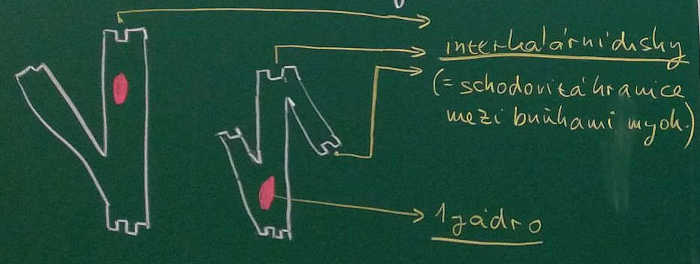 interkalární disky
(= schodovitá hranice
mezi buňkami myok.)
1 jádro